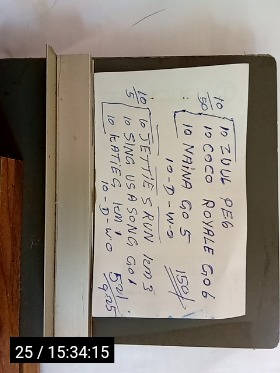 10/50 [ 10 IDUL PEG
10 COCO ROYALE GO 6
: [ 10 NAINA GO 5
10 - D - W - O
150/
10/5 [ 10 JETTIE S RUN 1cm 3
10 SING US A SONG GO 1
: [ 10 KATIES 1cm 1
10 - D - W - O
52/
25 / 15:34:15